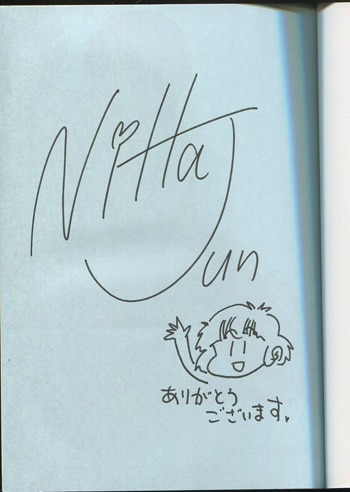 Nitta
Jun
ありがとう
ございます。